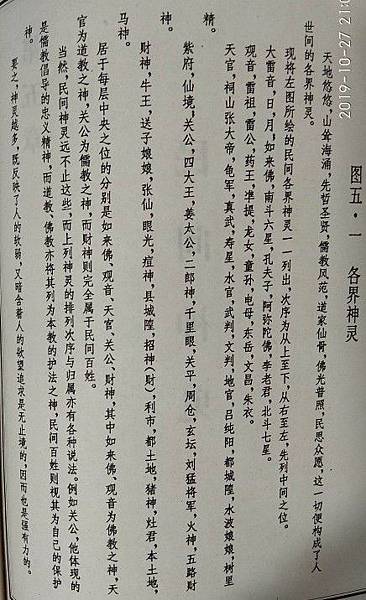 2019-10-27 21:0
图五·一 各界神灵
天地悠悠，山耸海涌，先哲圣贤，儒教风范，道家仙骨，佛光普照，民思众愿，这一切便构成了人
世间的各界神灵。
现将左图所绘的民间各界神灵一一列出，次序为从上至下，从右至左，先列中间之位。
大雷音，日，月，如来佛，南斗六星，孔夫子，阿弥陀佛，李老君，北斗七星。
观音，雷祖，雷公，药王，准提，龙女，童孙，电母，东岳，文昌，朱衣。
天官，祠山张大帝，龟军，真武，寿星，水官，武判，文判，地官，吕纯阳，都城隍，水波娘娘，树里
精。
紫府，仙境，关公，四大王，姜太公，二郎神，千里眼，关平，周仓，玄坛，刘猛将军，火神，五路财
神。
财神，牛王，送子娘娘，张仙，眼光，痘神，县城隍，招神（财），利市，都土地，猪神，灶君，本土地，
马神。
居于每层中央之位的分别是如来佛、观音、天官、关公、财神，其中如来佛、观音为佛教之神，天
官为道教之神，关公为儒教之神，而财神则完全属于民间百姓。
当然，民间神灵远不止这些，而上列神灵的排列次序与归属亦有各种说法。例如关公，他体现的
是儒教倡导的忠义精神，而道教、佛教亦将其列为本教的护法之神，民间百姓则视其为自己的保护
神。
要之，神灵越多，既反映了人的软弱，又暗含着人的欲望追求是无止境的，因而也是强有力的。